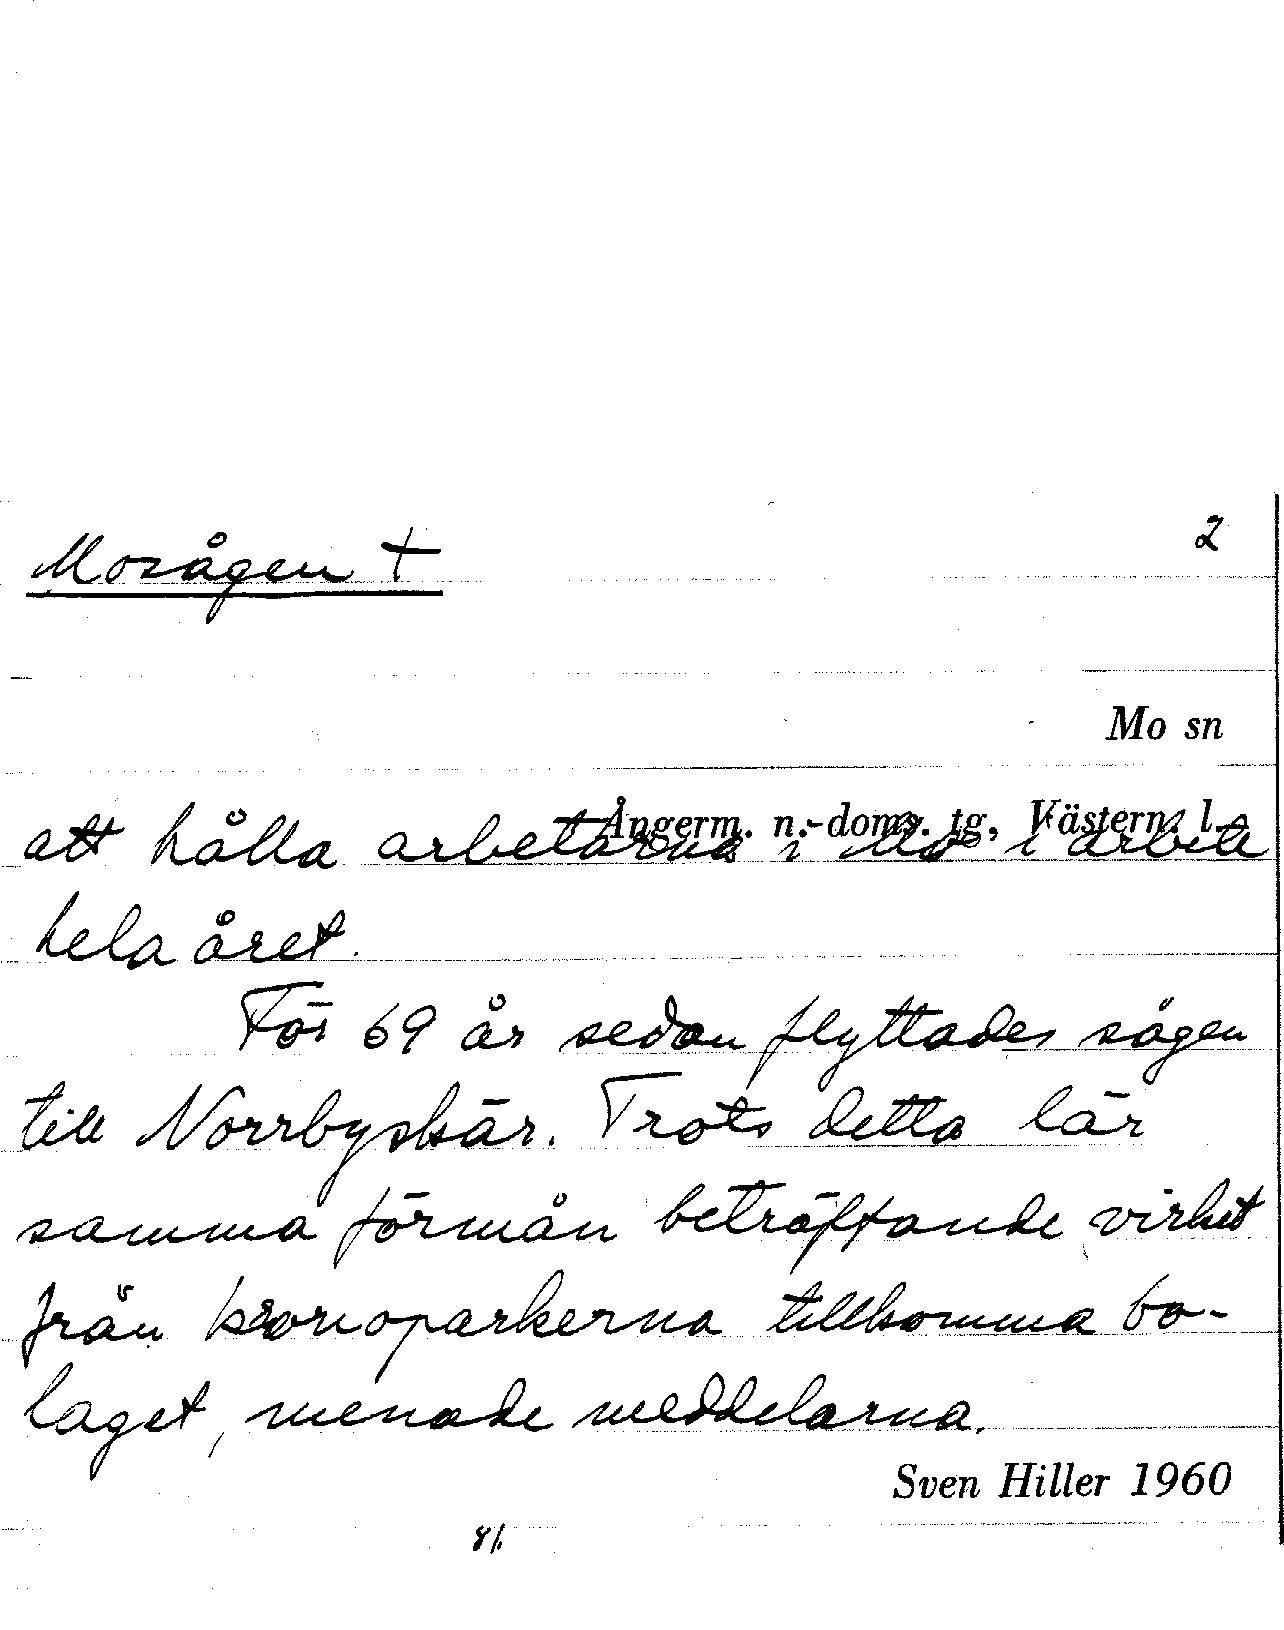 Mosågen +
2
Mo sn
Ångerm. n.-doms. tg, Västern. l.
att hålla arbetarna i Mo i arbete
hela året.
För 69 år sedan flyttades sågen
till Norrbyskär. Trots detta lär
samma förmån beträffande virket
från kronoparkerna tillkomma bo-
laget, menade meddelarna.
Sven Hiller 1960